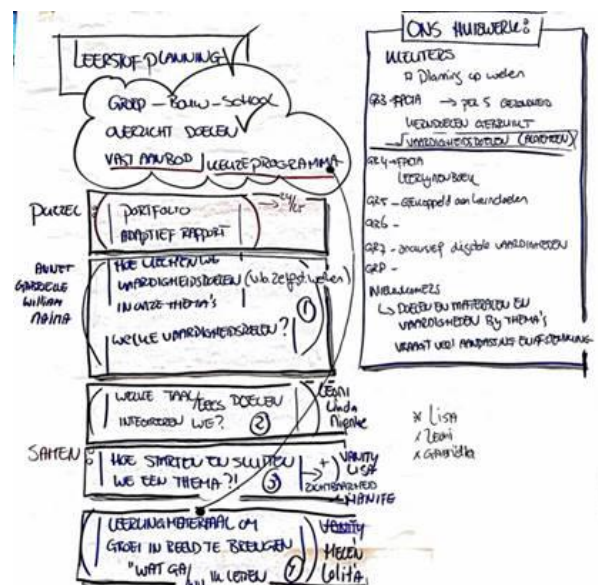 LEERSTOF-PLANNING
GROEP - BOUW - SCHOOL
OVERZICHT DOELEN
VAST AANBOD / KEUZEPROGRAMMA
PUZZEL:
PORTFOLIO
ADAPTIEF RAPPORT
→ 24/25
ANNET
GABRIELLE
William
NAIMA
HOE VLECHTEN WE
VAARDIGHEIDSDOELEN (v.b. zelfst. werken)
IN ONZE THEMA'S
①
WELKE VAARDIGHEIDSDOELEN?
WELKE TAAL/LEES DOELEN
INTEGREREN WE? ②
Leoni
Linda
Nienke
SAMEN:
HOE STARTEN EN SLUITEN
WE EEN THEMA?! ③
+ VANITY
LISA
ZICHTBAARHEID
HANIFE
LEERLINGMATERIAAL OM
GROEI IN BEELD TE BRENGEN
"WAT GA
IK LEREN ④
VANITY
HELEN
Lolita
ONS HUISWERK:
KLEUTERS
Planning op weken
GR3 - FACTA → PER 5 GEBUNDELD
KERNDOELEN GEBRUIKT
√ VAARDIGHEIDSDOELEN (ALGEMEEN)
GR4 → FACTA
LEERLIJNENBOEK
GR5 - Gekoppeld aan kerndoelen
GR6 -
GR7 - digitale VAARDIGHEDEN
GR8 -
NIEUWKOMERS
↳ DOELEN EN MATERIALEN EN
VAARDIGHEDEN BIJ THEMA'S
VRAAGT VEEL AANPASSING EN AFSTEMMING
x Lisa
x Leoni
x Gabriella